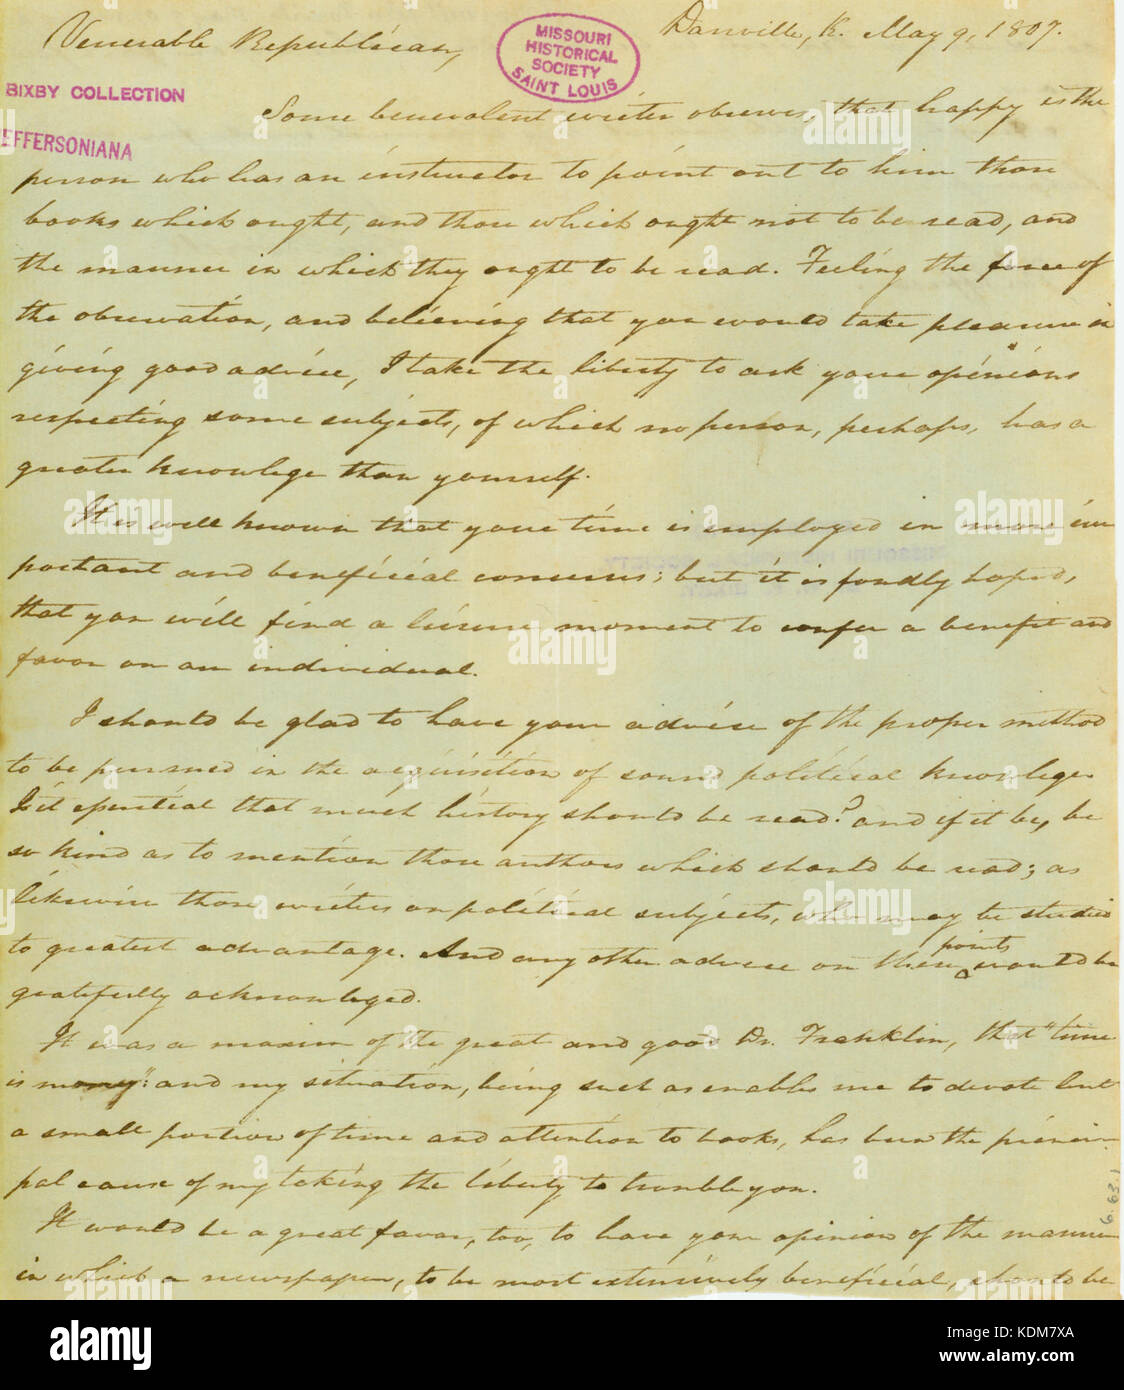 Danville, K. May 9, 1807.
Venerable Republican,
MISSOURI
HISTORICAL
SOCIETY
SAINT LOUIS
BIXBY COLLECTION
EFFERSONIANA
Some benevolent writer observes, that happy is the
person who has an instructor to point out to him those
books which ought, and those which ought not to be read, and
the manner in which they ought to be read. Feeling the force of
the observation, and believing that you would take pleasure in
giving good advice, I take the liberty to ask your opinions
respecting some subjects, of which no person, perhaps, has a
greater knowlege than yourself.
It is well known that your time is employed in more im
portant and beneficial concerns; but it is fondly hoped,
that you will find a leisure moment to confer a benefit and
favor on an individual.
I should be glad to have your advice of the proper method
to be pursued in the acquisition of sound political knowlege.
Is it essential that much history should be read? and if it be, be
so kind as to mention those authors which should be read; as
likewise those writers on political subjects, who may be studied
to greatest advantage. And any other advice on these points would be
gratefully acknowleged.
It was a maxim of the great and good Dr. Franklin, that "time
is money": and my situation, being such as enables me to devote but
a small portion of time and attention to books, has been the princi-
pal cause of my taking the liberty to trouble you.
It would be a great favor, too, to have your opinion of the manner
in which a newspaper, to be most extensively beneficial, should be
6.63.1
alamy
Image ID: KDM7XA
www.alamy.com